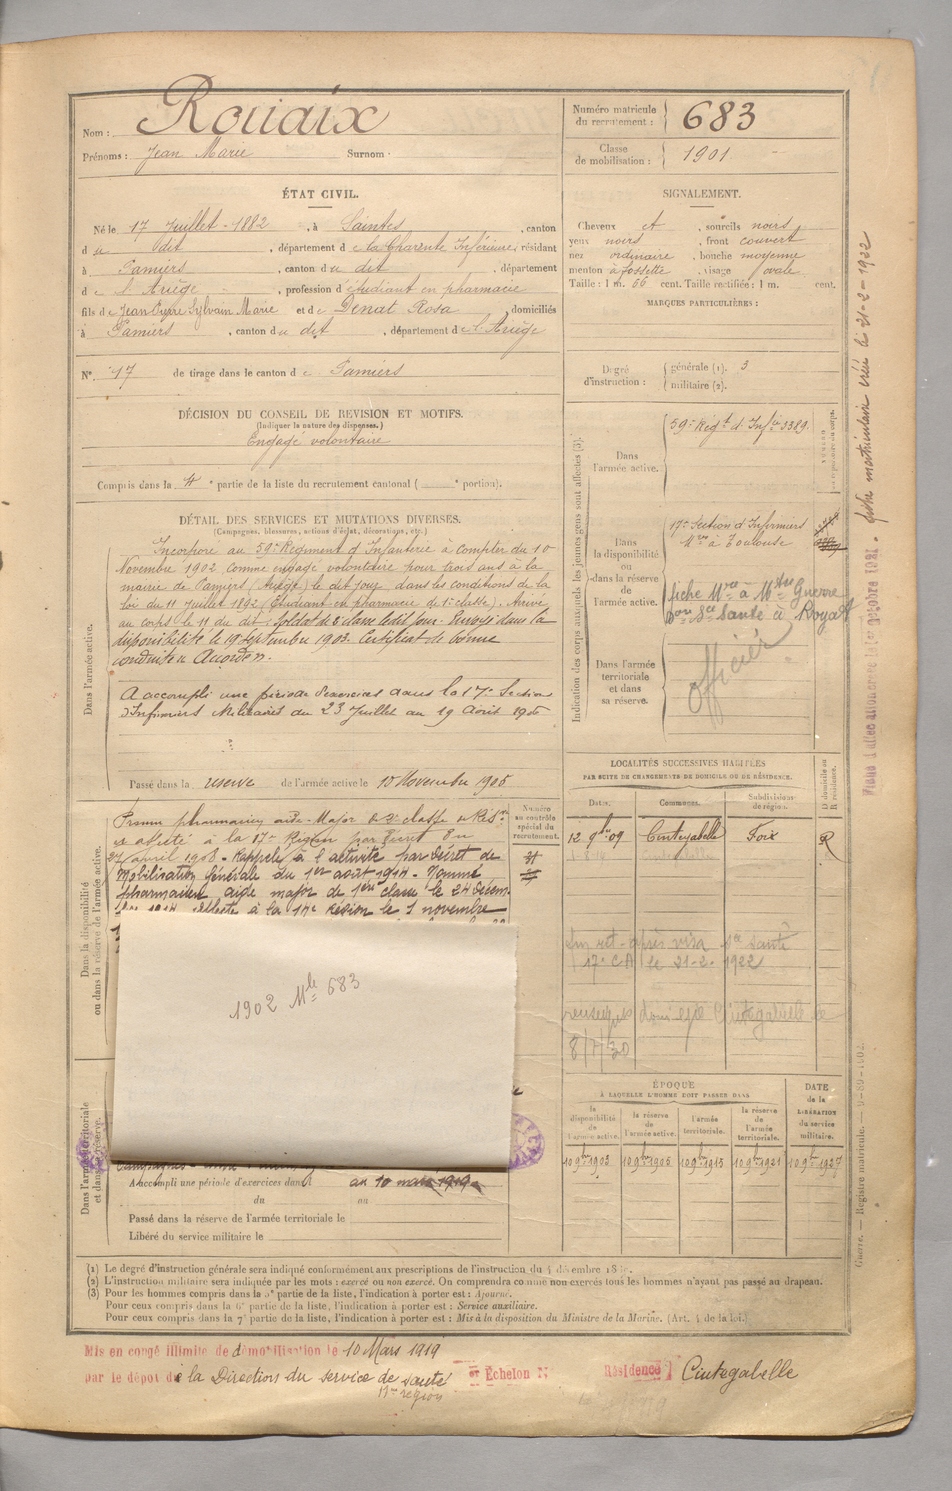 Nom : Rouaix
Prénoms : Jean Marie Surnom :
ÉTAT CIVIL.
Né le 17 Juillet - 1882, à Saintes, canton
du dit, département de la Charente Inférieure, résidant
à Pamiers, canton du dit, département
de l'Ariège, profession d'étudiant en pharmacie
fils de Jean Eugène Sylvain Marie et de Denat Rosa, domiciliés
à Pamiers, canton du dit, département de l'Ariège
N° 17 de tirage dans le canton de Pamiers
DÉCISION DU CONSEIL DE REVISION ET MOTIFS.
(Indiquer la nature des dispenses.)
Engagé volontaire
Compris dans la 4e partie de la liste du recrutement cantonal ( e portion).
DÉTAIL DES SERVICES ET MUTATIONS DIVERSES.
(Campagnes, blessures, actions d'éclat, décorations, etc.)
Dans l'armée active.
Incorporé au 59e Régiment d'Infanterie à compter du 10
Novembre 1902 comme engagé volontaire pour trois ans à la
mairie de Pamiers (Ariège) le dit jour dans les conditions de la
loi du 11 Juillet 1892 (Étudiant en pharmacie de 1e classe). Arrivé
au corps le 11 du dit. Soldat de 2e classe le dit jour. Envoyé dans la
disponibilité le 19 septembre 1903. Certificat de bonne
conduite Accordé.
A accompli une période d'exercices dans la 17e Section
d'Infirmiers Militaires du 23 Juillet au 19 Août 1906
Passé dans la réserve de l'armée active le 10 Novembre 1905
Dans la disponibilité
ou dans la réserve de l'armée active.
Promu pharmacien aide-Major de 2e classe de Rés
et affecté à la 17e Région par décret du
27 avril 1908 - Rappelé à l'activité par décret de
Mobilisation générale du 1er août 1914 - Nommé
pharmacien aide major de 1ère classe le 24 Décem
1914 affecté à la 17e Région le 1 novembre
Numéro
au contrôle
spécial du
recrutement.
1902 Mle 683
Dans l'armée territoriale
et dans sa réserve.
A accompli une période d'exercices dans au 10 mars 1919
du au
Passé dans la réserve de l'armée territoriale le
Libéré du service militaire le
Numéro matricule
du recrutement : 683
Classe
de mobilisation : 1901
SIGNALEMENT.
Cheveux et, sourcils noirs
yeux noirs, front couvert
nez ordinaire, bouche moyenne
menton à fossette, visage ovale
Taille : 1 m. 66 cent. Taille rectifiée : 1 m. cent.
MARQUES PARTICULIÈRES :
Degré
d'instruction :
générale (1). 3
militaire (2).
Indication des corps auxquels les jeunes gens sont affectés (3).
Dans
l'armée active.
59e Régt d'Infie 3389.
Dans
la disponibilité
ou
dans la réserve
de
l'armée active.
17e Section d'Infirmiers
Mres à Toulouse
fiche Mle à Mtère Guerre
Son Sce Santé à Royat
Dans l'armée
territoriale
et dans
sa réserve.
Officier
LOCALITÉS SUCCESSIVES HABITÉES
PAR SUITE DE CHANGEMENTS DE DOMICILE OU DE RÉSIDENCE.
Dates. Communes. Subdivisions
de région. D domicile ou
R résidence.
12 9bre 09 Cintegabelle Foix R
après visa Sce Santé
17e CA le 21-2-1922
Cintegabelle le
8/7/30
ÉPOQUE
À LAQUELLE L'HOMME DOIT PASSER DANS
la
disponibilité
de
l'armée active.
la réserve
de
l'armée active.
l'armée
territoriale.
la réserve
de
l'armée
territoriale.
DATE
de la
LIBÉRATION
du service
militaire.
10 9bre 1903 10 9bre 1905 10 9bre 1915 10 9bre 1921 10 9bre 1927
fiche matriculaire créée le 21-2-1922
Guerre. — Registre matricule. —
(1) Le degré d'instruction générale sera indiqué conformément aux prescriptions de l'instruction du 4 décembre
(2) L'instruction militaire sera indiquée par les mots : exercé ou non exercé. On comprendra comme non exercés tous les hommes n'ayant pas passé au drapeau.
(3) Pour les hommes compris dans la 5e partie de la liste, l'indication à porter est : Ajourné.
Pour ceux compris dans la 6e partie de la liste, l'indication à porter est : Service auxiliaire.
Pour ceux compris dans la 7e partie de la liste, l'indication à porter est : Mis à la disposition du Ministre de la Marine. (Art. 4 de la loi.)
Mis en congé illimité de démobilisation le 10 Mars 1919
par le dépôt de la Direction du service de santé
17me région
er Échelon N
Résidence Cintegabelle